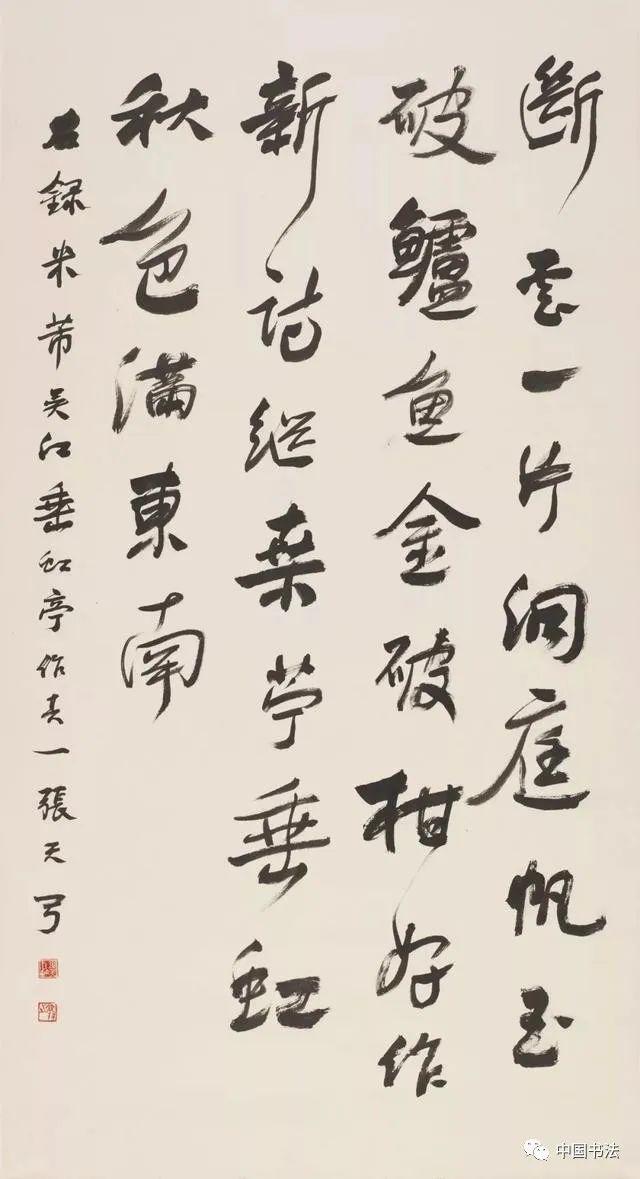 斷雲一片洞庭帆玉
破鱸魚金破柑好作
新詩繼桑苧垂虹
秋色滿東南
右録米芾吴江垂虹亭作其一張天弓
中国书法